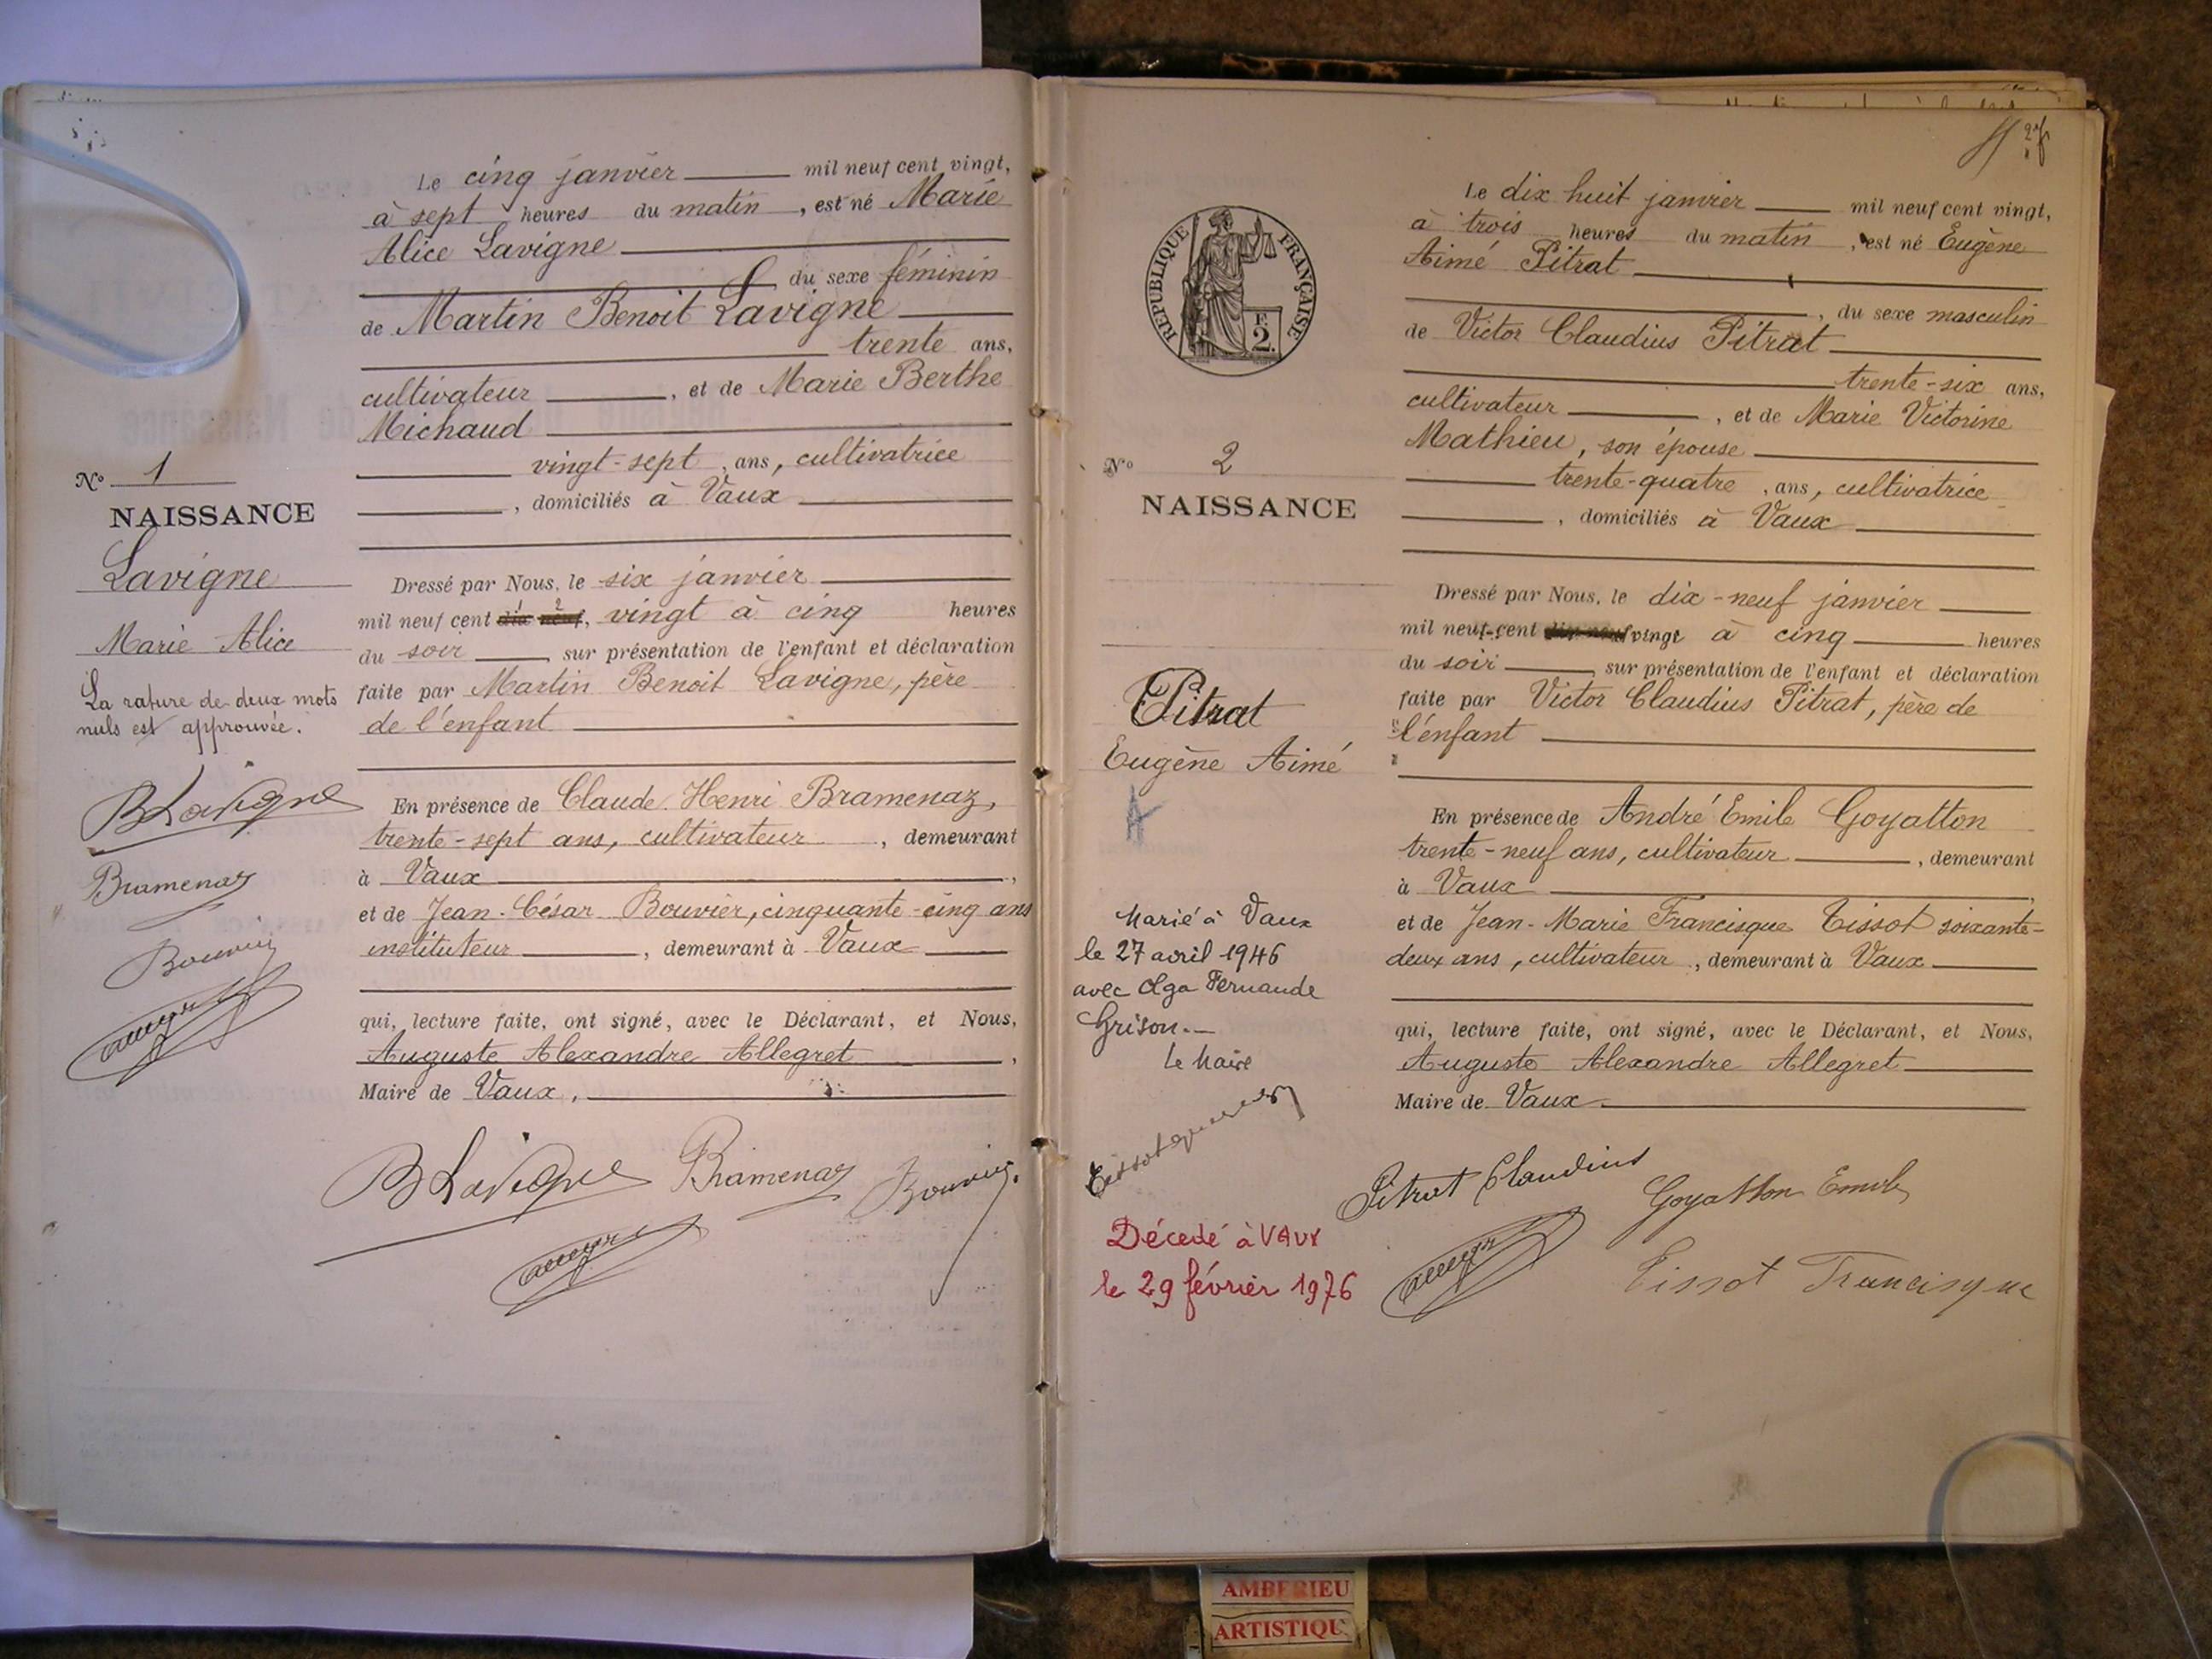 Le cinq janvier mil neuf cent vingt,
à sept heures du matin, est né Marie
Alice Lavigne
du sexe féminin
de Martin Benoit Lavigne
trente ans,
cultivateur, et de Marie Berthe
Michaud
vingt-sept, ans, cultivatrice
, domiciliés à Vaux
No 1
NAISSANCE
Lavigne
Marie Alice
La rature de deux mots
nuls est approuvée.
BLavigne
Bramenaz
Bouvier
Dressé par Nous, le six janvier
mil neuf cent dix neuf, vingt à cinq heures
du soir, sur présentation de l'enfant et déclaration
faite par Martin Benoit Lavigne, père
de l'enfant
En présence de Claude Henri Bramenaz,
trente-sept ans, cultivateur, demeurant
à Vaux,
et de Jean-César Bouvier, cinquante-cinq ans
instituteur, demeurant à Vaux
qui, lecture faite, ont signé, avec le Déclarant, et Nous,
Auguste Alexandre Allegret,
Maire de Vaux,
BLavigne Bramenaz Bouvier
27
REPUBLIQUE FRANÇAISE
F.
2.
No 2
NAISSANCE
Pitrat
Eugène Aimé
A
Marié à Vaux
le 27 avril 1946
avec Olga Fernande
Grison.
Le Maire
Décédé à VAUX
le 29 février 1976
Le dix huit janvier mil neuf cent vingt,
à trois heures du matin, est né Eugène
Aimé Pitrat
, du sexe masculin
de Victor Claudius Pitrat
trente-six ans,
cultivateur, et de Marie Victorine
Mathieu, son épouse
trente-quatre, ans, cultivatrice
, domiciliés à Vaux
Dressé par Nous, le dix-neuf janvier
mil neuf cent dix-neuf vingt à cinq heures
du soir, sur présentation de l'enfant et déclaration
faite par Victor Claudius Pitrat, père de
l'enfant
En présence de André Emile Goyatton
trente-neuf ans, cultivateur, demeurant
à Vaux,
et de Jean-Marie Francisque Tissot soixante-
deux ans, cultivateur, demeurant à Vaux
qui, lecture faite, ont signé, avec le Déclarant, et Nous,
Auguste Alexandre Allegret
Maire de Vaux
Pitrat Claudius Goyatton Emile
Tissot Francisque
AMBERIEU
ARTISTIQU